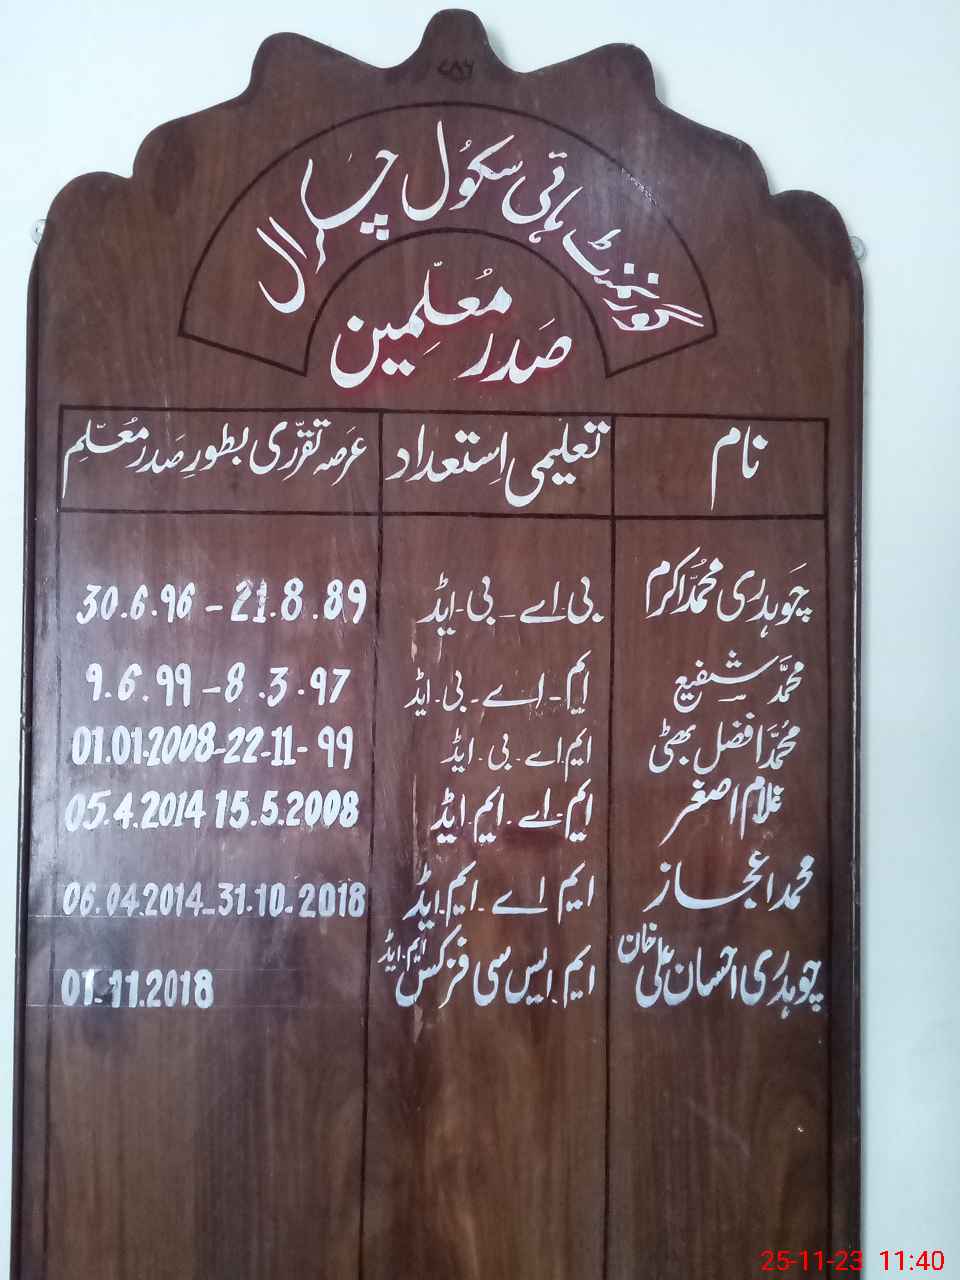 ۷۸۶
گورنمنٹ ہائی سکُول چہرال
صَدر مُعلّمِین
نام تعلیمی اِستعداد عرَصہ تقرّری بطورِ صَدر مُعلّمِ
چَوہدری محمُّد اکرم بی-اے-بی-ایڈ 30.6.96 - 21.8.89
محمَّد شفیع ایم-اے-بی-ایڈ 9.6.99 - 8.3.97
محمُّد افضل بھٹی ایم اے-بی-ایڈ 01.01.2008-22-11-99
غلام اصغر ایم-اے-ایم-ایڈ 05.4.2014 15.5.2008
محمد اعجاز ایم اے-ایم-ایڈ 06.04.2014-31.10.2018
چوہدری احسان علی خان ایم-ایس سی فزکس ایم-ایڈ 01-11.2018
25-11-23 11:40